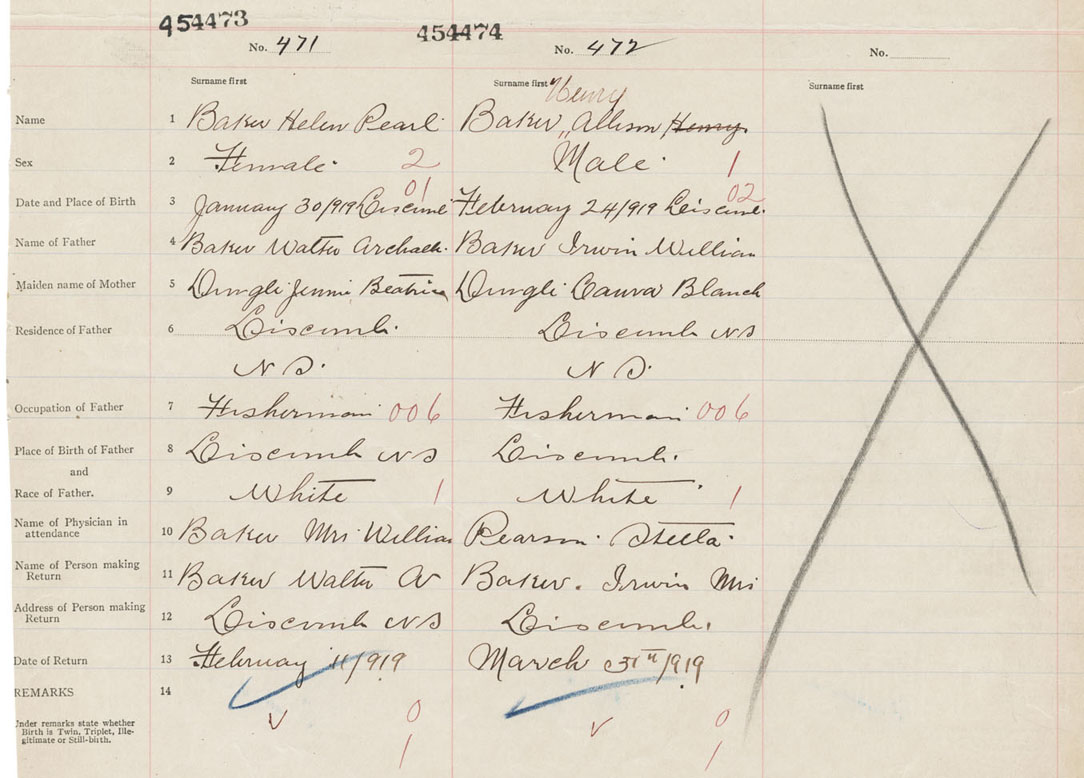 454473
454474
No. 471
No. 472
No.
Surname first
Surname first
Surname first
Henry
Name 1 Baker Helen Pearl Baker, Allison Henry
Sex 2 Female 2 Male 1
01 02
Date and Place of Birth 3 January 30/919 Liscomb February 24/919 Liscomb
Name of Father 4 Baker Walter Baker Irwin William
Maiden name of Mother 5 Jennie Beatrice Laura Blanch
Residence of Father 6 Liscomb Liscomb NS
N S. N S.
Occupation of Father 7 Fisherman 006 Fisherman 006
Place of Birth of Father 8 Liscomb NS Liscomb.
and
Race of Father. 9 White 1 White 1
Name of Physician in
attendance 10 Baker Mrs William Pearson Stella
Name of Person making
Return 11 Baker Walter A Baker. Irwin Mrs
Address of Person making
Return 12 Liscomb NS Liscomb.
Date of Return 13 February 11/919 March 31th/919
REMARKS 14
Under remarks state whether
Birth is Twin, Triplet, Ille-
gitimate or Still-birth.
v 0 v 0
1 1